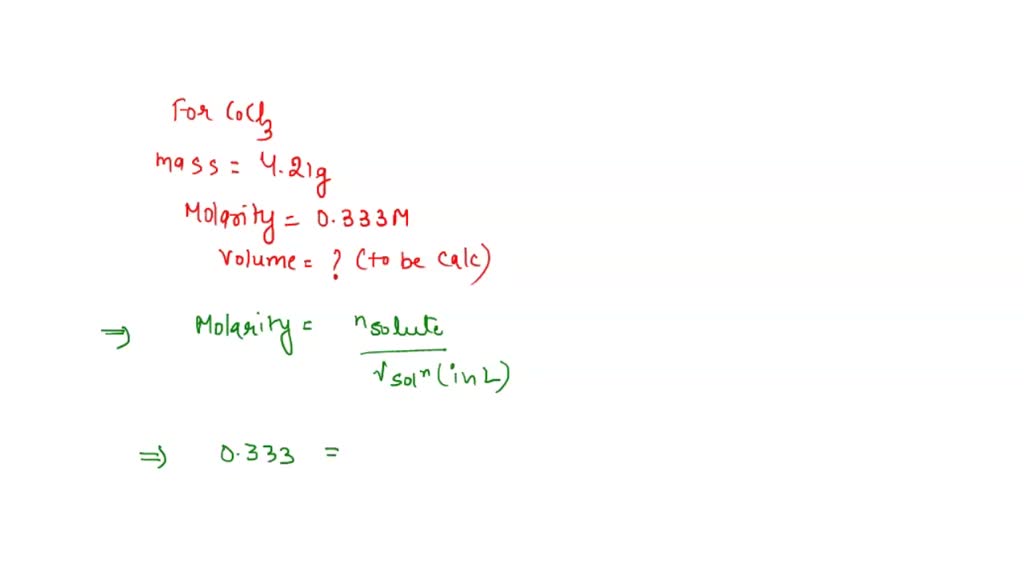 For CoCl3
mass = 4.21g
Molarity = 0.333M
Volume = ? (to be calc)
⇒ Molarity = nsolute / Vsolⁿ (in L)
⇒ 0.333 =